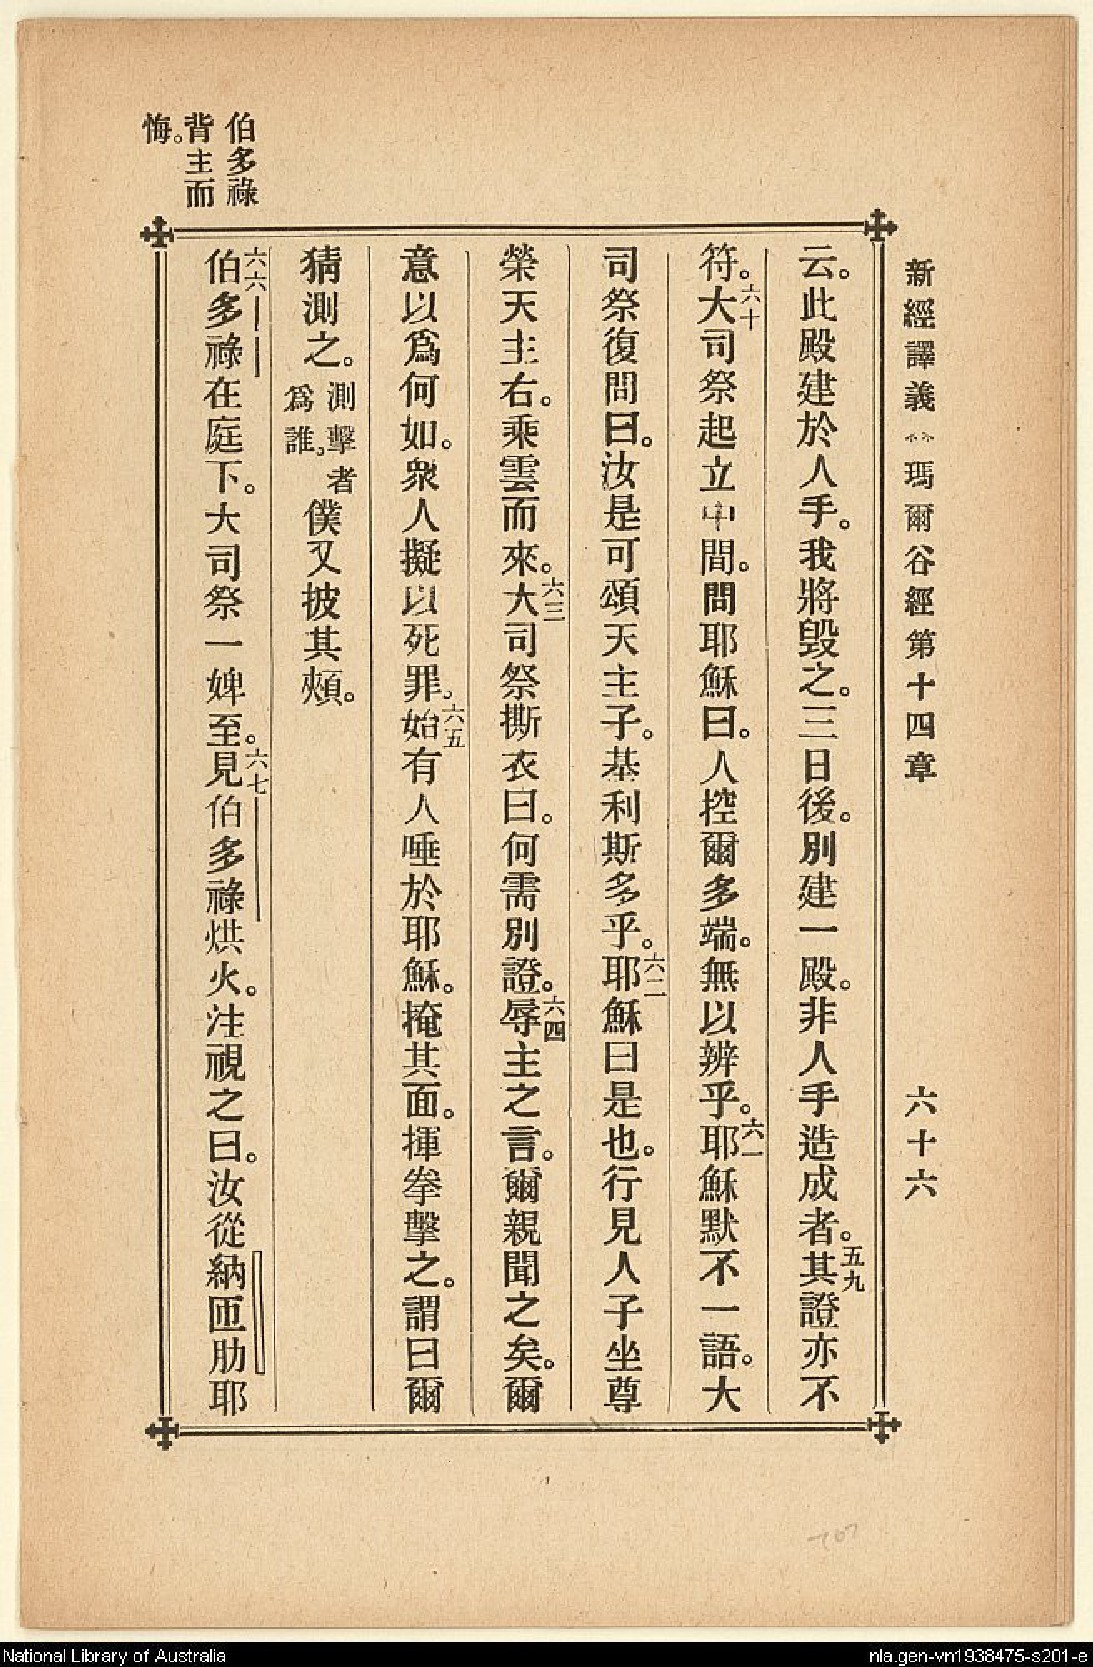 新經譯義 瑪爾谷經第十四章 六十六
云。此殿建於人手。我將毀之。三日後。別建一殿。非人手造成者。五九其證亦不
符。六十大司祭起立中間。問耶穌曰。人控爾多端。無以辨乎。六一耶穌默不一語。大
司祭復問曰。汝是可頌天主子。基利斯多乎。六二耶穌曰是也。行見人子坐尊
榮天主右。乘雲而來。六三大司祭撕衣曰。何需別證。六四辱主之言。爾親聞之矣。爾
意以爲何如。衆人擬以死罪。六五始有人唾於耶穌。掩其面。揮拳擊之。謂曰爾
猜測之。測擊者爲誰。僕又披其頰。
伯多祿
背主而
悔。
六六伯多祿在庭下。大司祭一婢至。六七見伯多祿烘火。注視之曰。汝從納匝肋耶
National Library of Australia
nla.gen-vn1938475-s201-e